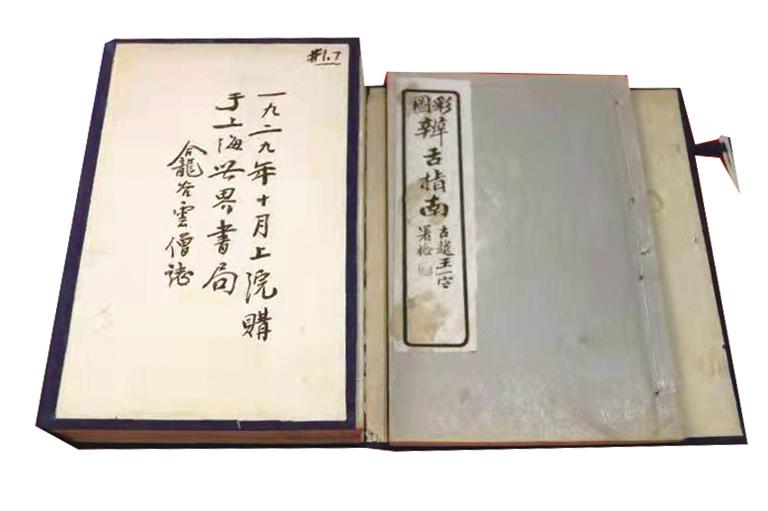 #1.7
一九二九年十月上浣購
于上海世界書局
合龍 雲僧誌
彩圖
辨舌指南
古越王一
署檢